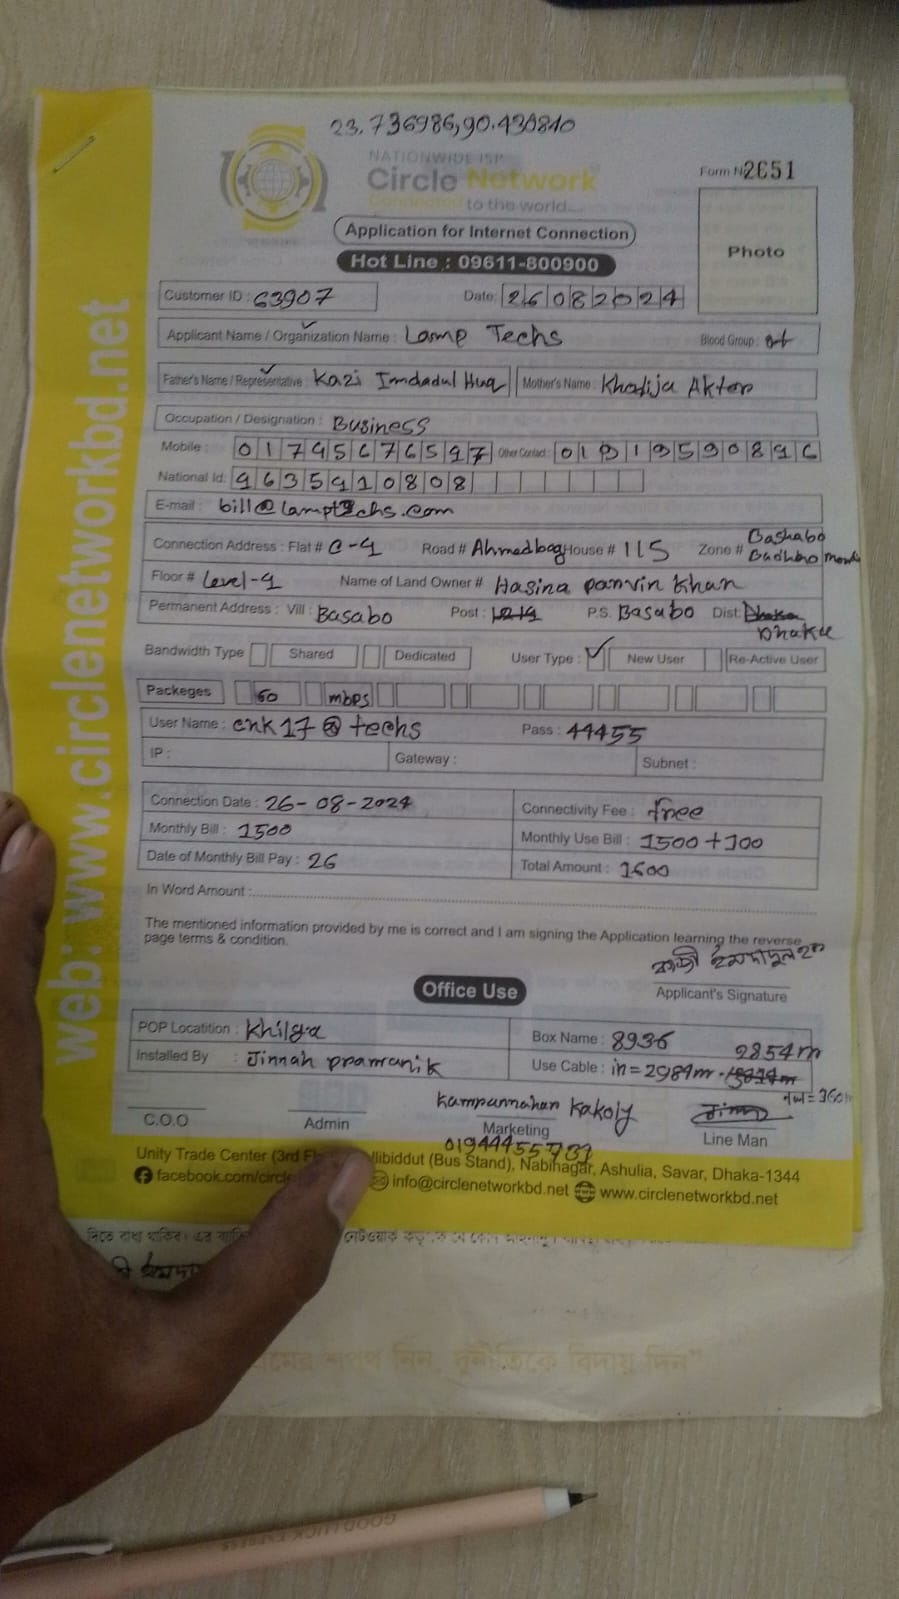 23.736986,90.430810
NATIONWIDE ISP
Circle Network
Connected to the world....
Form N 2651
Photo
Application for Internet Connection
Hot Line : 09611-800900
Customer ID : 63907 Date: 26082024
Applicant Name / Organization Name : Lamp Techs Blood Group :
Father's Name / Representative : Kazi Imdadul Huq Mother's Name : Khadija Akter
Occupation / Designation : Business
Mobile : 01745676597 Other Contact :
National Id: 4635910808
E-mail : bill@lamptechs.com
Connection Address : Flat # C-4 Road # Ahmedbag House # 115 Zone # Bashabo
Floor # Level-4 Name of Land Owner # Hasina Parvin Khan
Permanent Address : Vill : Basabo Post : P.S. Basabo Dist: Dhaka
Dhaka
Bandwidth Type Shared Dedicated User Type : ✓ New User Re-Active User
Packeges 60 mbps
User Name : cnk17@techs Pass : 44455
IP : Gateway : Subnet :
Connection Date : 26-08-2024 Connectivity Fee : free
Monthly Bill : 1500 Monthly Use Bill : 1500+100
Date of Monthly Bill Pay : 26 Total Amount : 1600
In Word Amount :
The mentioned information provided by me is correct and I am signing the Application learning the reverse
page terms & condition.
কাজী ইমদাদুল হক
Applicant's Signature
Office Use
POP Locatition : Khilga Box Name : 8936
Installed By : Jinnah pramanik Use Cable : in=2984m - 2854m
Kakoly
C.O.O Admin Marketing Line Man
Unity Trade Center (3rd Fl llibiddut (Bus Stand), Nabinagar, Ashulia, Savar, Dhaka-1344
facebook.com/circle info@circlenetworkbd.net www.circlenetworkbd.net
web: www.circlenetworkbd.net
GOOD LUCK EXPRESS